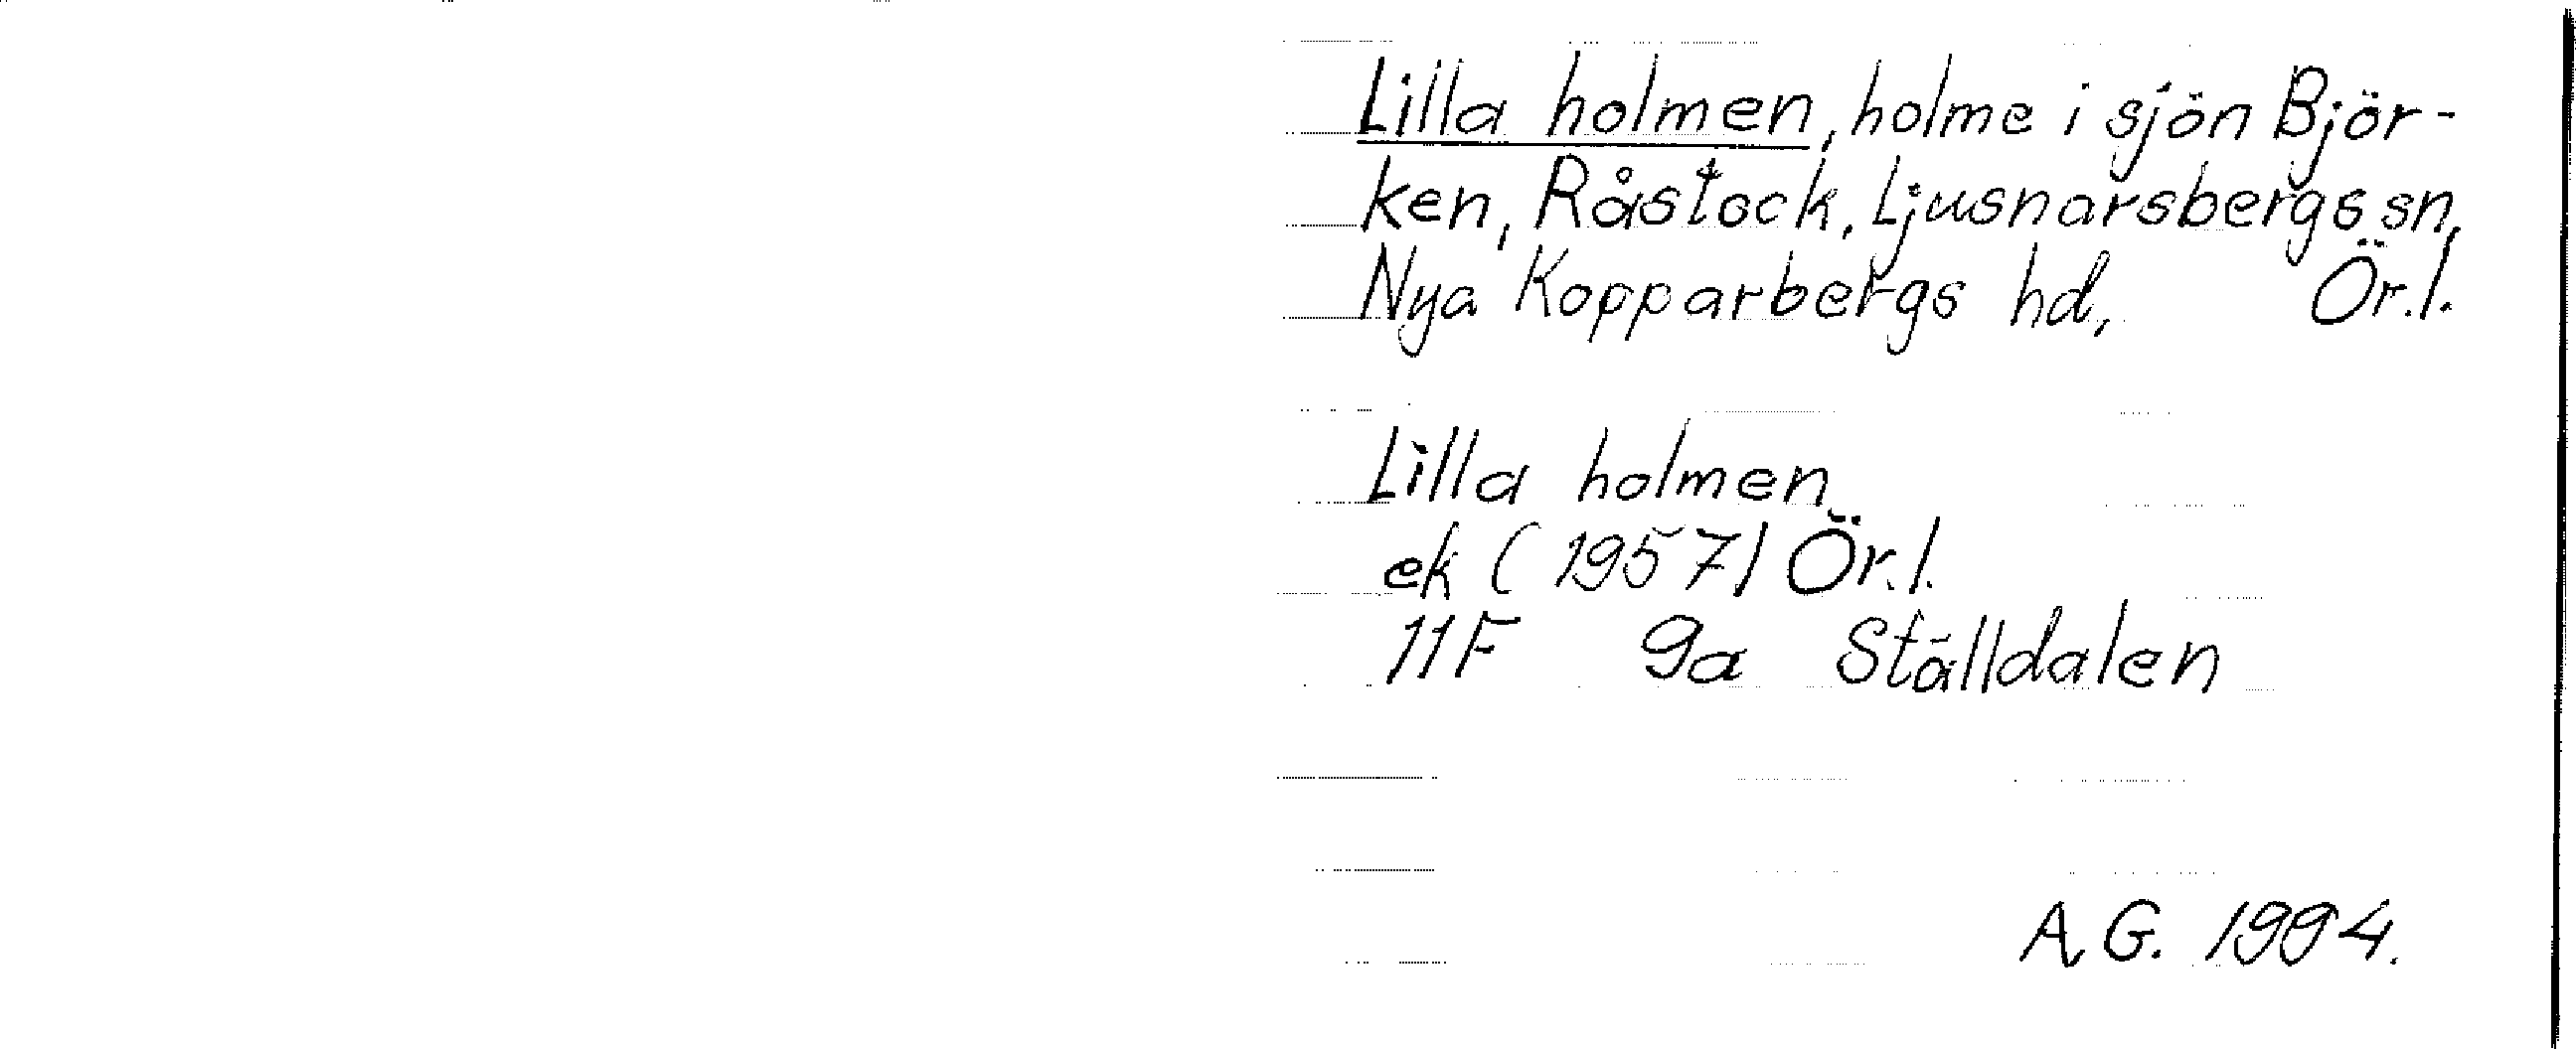 Lilla holmen, holme i sjön Björ-
ken, Råstock, Ljusnarsbergs sn,
Nya Kopparbergs hd, Ör.l.
Lilla holmen
ek (1957) Ör.l.
11F 9a Ställdalen
A.G. 1994.